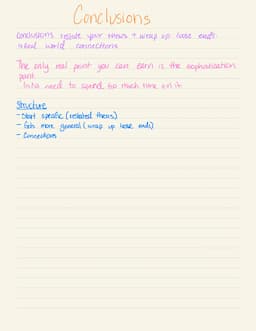 Conclusions
Conclusions restate your thesis + wrap up loose ends.
real world connections
The only real point you can earn is the sophistication
point
no need to spend too much time on it
Structure
- Start specific (restated thesis)
- Gets more general (wrap up loose ends)
- Connections